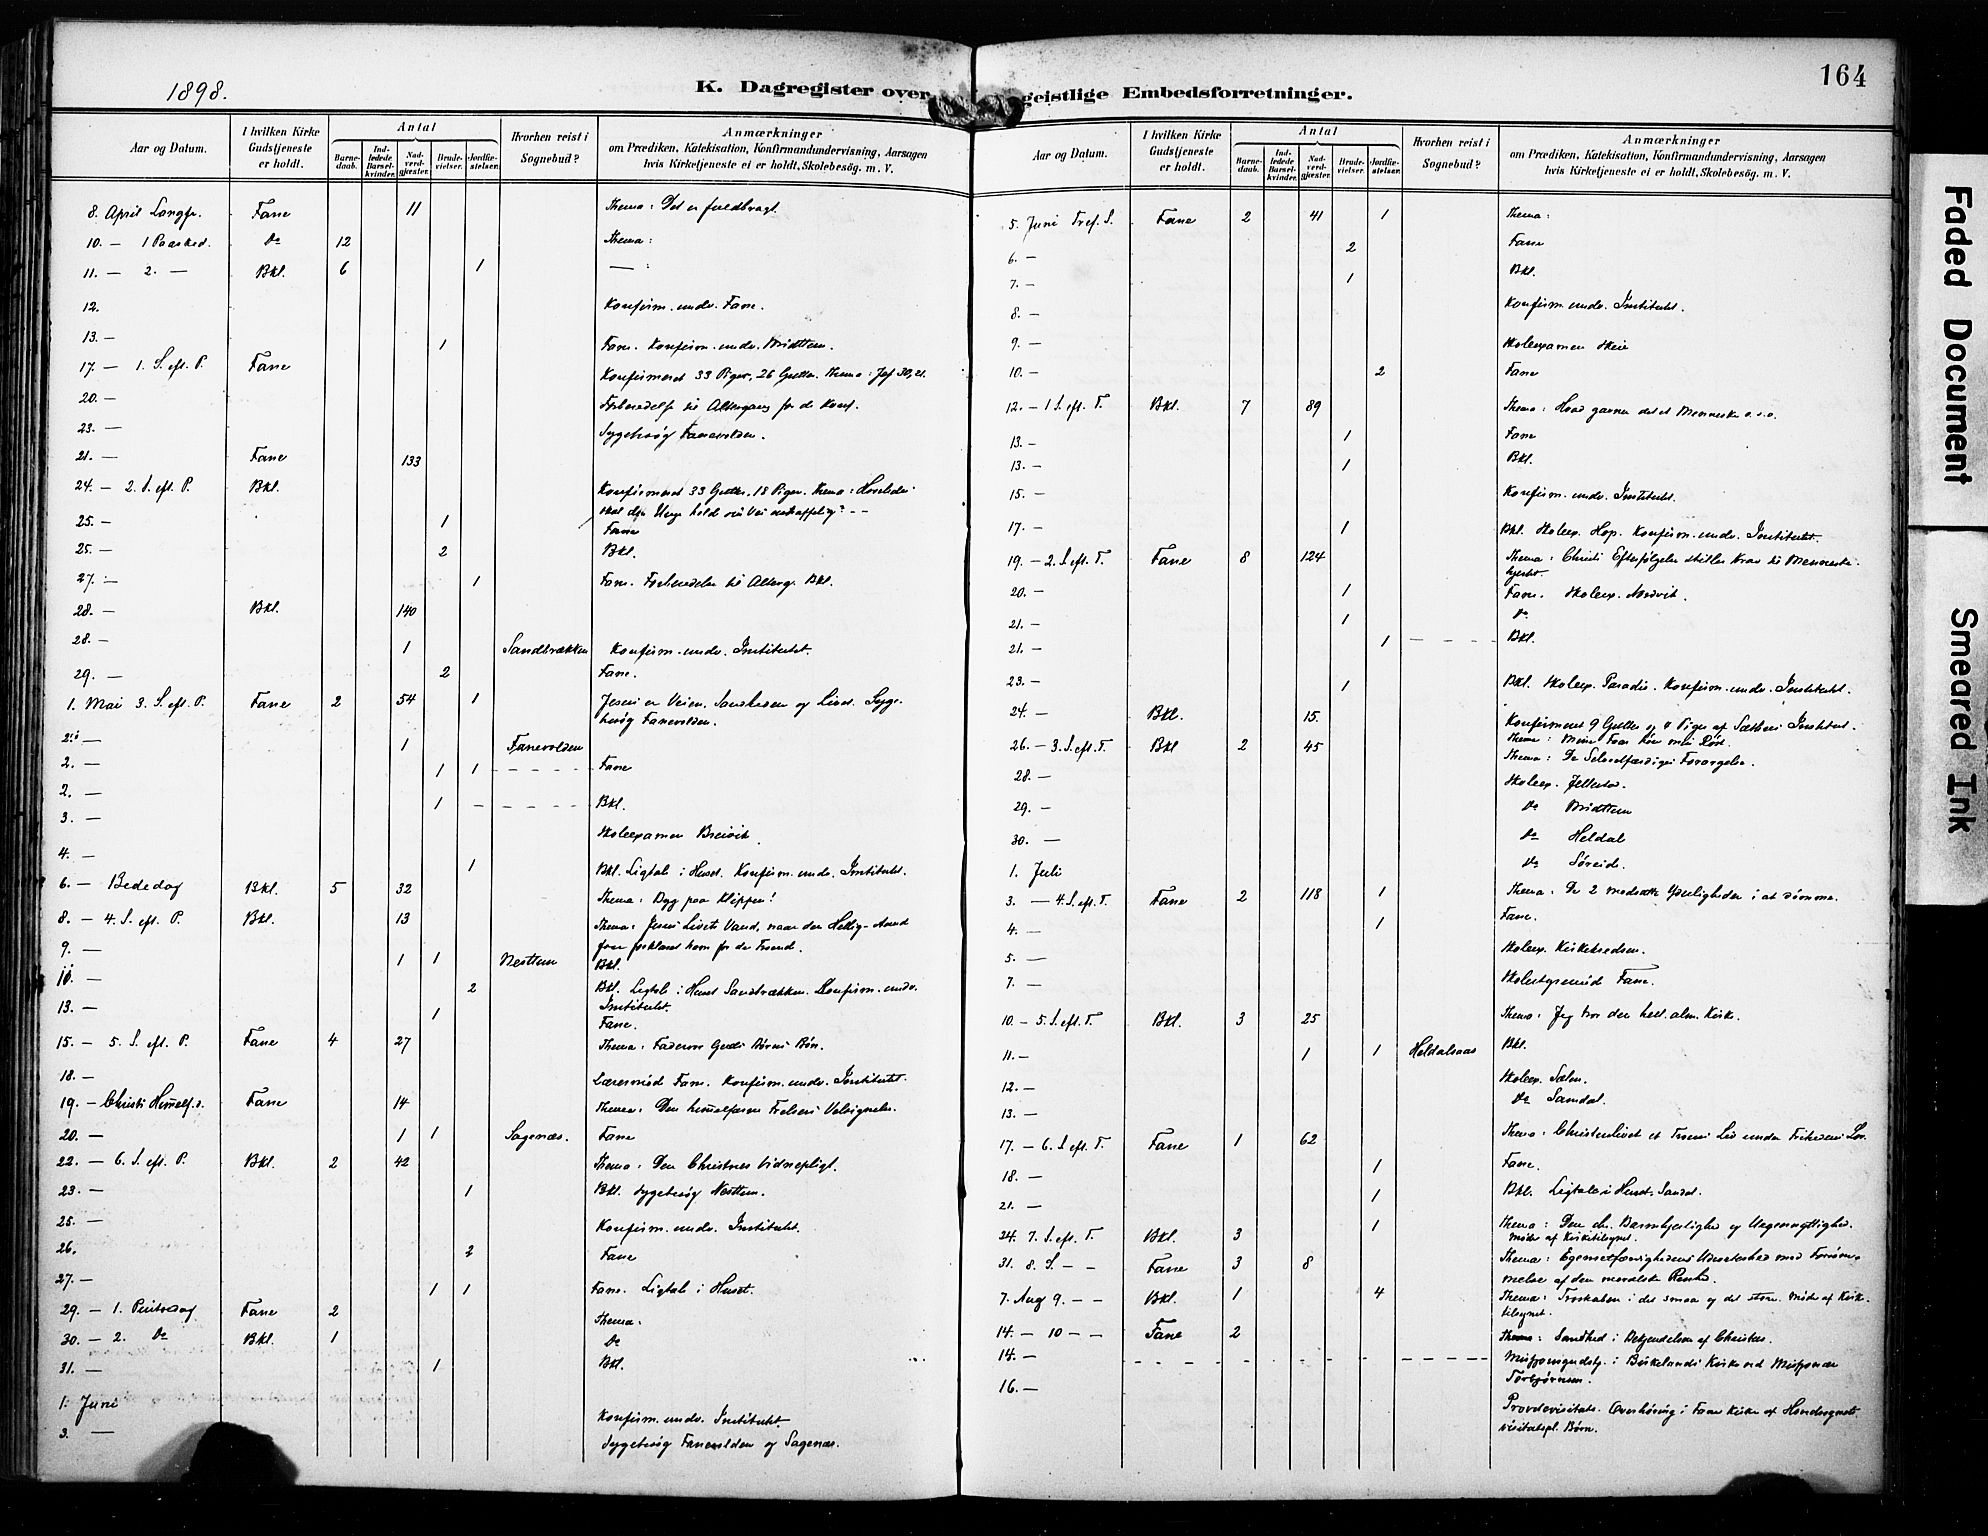 1898.
K. Dagregister over geistlige Embedsforretninger.
164
Aar og Datum. I hvilken Kirke Gudstjeneste er holdt. Antal Barnedaab. Indledede Barselkvinder. Nadverdgjæster. Brudevielser. Jordfæstelser. Hvorhen reist i Sognebud? Anmærkninger om Prædiken, Katekisation, Konfirmandundervisning, Aarsagen hvis Kirketjeneste ei er holdt, Skolebesøg. m. V.
8. April Langfr. Fane 11 Thema: Det er fuldbragt.
10. — 1 Paasked. Do 12 Thema:
11. — 2. — Bkl. 6 1 — :
12. Konfirm. undv. Fane.
13. — 1 Fane. Konfirm. undv. Midttun.
17. — 1. S. eft. P. Fane Konfirmeret 33 Piger, 26 Gutter. Thema: Jes 30, 21.
20. — Forberedelse til Altergang for de Konf.
23. — Sygebesøg Fanevolden.
21. — Fane 133
24. — 2. S. eft. P. Bkl. Konfirmeret 33 Gutter. 18 Piger. Thema: Hvorledes
skal den Unge holde sin Vei ustraffelig? - -
25. — 1 Fane
25. — 2 Bkl.
27. — 1 Fane. Forberedelse til Alterg. Bkl.
28. — Bkl. 140
28. — 1 Sandbrækken Konfirm. undv. Institutet.
29. — 2 Fane.
1. Mai 3. S. eft. P. Fane 2 54 1 Jesus er Veien, Sandheden og Livet. Syge-
besøg Fanevolden.
2. — 1 Fanevolden
2. — 1 1 - - - - Fane
2. — 1 - - - - Bkl.
3. — Skoleexamen Breivik
4. — 1 Bkl. Ligtale i Huset. Konfirm. undv. Institutet.
6. — Bededag Bkl. 5 32 Thema: Byg paa Klippen!
8. — 4. S. eft. P. Bkl. 13 Thema: Jesus Livets Vand, naar den Hellig-Aand
faar forklaret ham for de Troende.
9. — 1 1 Nesttun Bkl.
10. — 2 Bkl. Ligtale i Huset Sandbrækken. Konfirm. undv.
Institutet.
13. — 1 Fane.
15. — 5. S. eft. P. Fane 4 27 Thema: Fadervor Guds Børns Bøn.
18. — Læremøde Fane. Konfirm. undv. Institutet.
19. — Christi Himmelf. d. Fane 14 Thema: Den himmelfarne Frelsers Velsignelse.
20. — 1 1 Sagenæs. Fane
22. — 6. S. eft. P. Bkl. 2 42 Thema: Den Christnes Vidnepligt.
23. — 1 Bkl. Sygebesøg Nesttun.
25. — Konfirm. undv. Institutet.
26. 2 Fane
27. — 1 1 Fane. Ligtale i Huset.
29. — 1. Pintsedag Fane 2 Thema.
30. — 2. Do Bkl. 1 Do
31. — 1 Bkl.
1. Juni Konfirm. undv. Institutet.
3. — Sygebesøg Fanevolden og Sagenæs.
Aar og Datum. I hvilken Kirke Gudstjeneste er holdt. Antal Barnedaab. Indledede Barselkvinder. Nadverdgjæster. Brudevielser. Jordfæstelser. Hvorhen reist i Sognebud? Anmærkninger om Prædiken, Katekisation, Konfirmandundervisning, Aarsagen hvis Kirketjeneste ei er holdt, Skolebesøg. m. V.
5. Juni Tref. S. Fane 2 41 1 Thema:
6. — 2 Fane
7. — 1 Bkl.
8. — Konfirm. undv. Institutet.
9. — Skoleexamen Skeie
10. — 2 Fane
12. — 1 S. eft. T. Bkl. 7 89 Thema: Hvad gavner det et Menneske o.s.v.
13. — 1 Fane
13. — 1 Bkl.
15. — Konfirm. undv. Institutet.
17. — 1 Bkl. Skoleex. Hop. Konfirm. undv. Institutet.
19. — 2. S. eft. T. Fane 8 124 Thema: Christi Efterfølgelse stiller Krav til Menneske-
hjertet.
20. — 1 Fane. Skoleex. Nordvik.
21. — 1 Do
21. — 1 - - - - Bkl.
23. — 1 Bkl. Skoleex. Paradis. Konfirm. undv. Institutet.
24. — Bkl. 15. Konfirmeret 9 Gutter og Piger af Institut.
Thema: Mine Faar høre min Røst.
26. — 3. S. eft. T. Bkl 2 45 Thema: De Selvretfærdiges Forargelse.
28. — Skoleex.
29. — Do Midttun
30. — Do Heldal
1. Juli Do Søreide.
3. — 4. S. eft. T. Fane 2 118 1 Thema: De 2 modsatte Yderligheder i at dømme.
4. — 1 Fane.
5. — Skoleex. Kirkebredsen.
7. — Skolestyremøde Fane.
10. — 5. S. eft. T. Bkl. 3 25 Thema: Jeg tror den hell. alm. Kirke.
11. — 1 1 Heldalsaas Bkl.
12. — Skoleex. Sælen.
13. — Do Samdal.
17. — 6. S. eft. T. Fane 1 62 Thema: Christenlivet et Troens Liv under Frihedens Lov.
18. — 1 Fane.
21. — 1 Bkl. Ligtale i Huset, Sandal.
24. 7. S. eft. T. Bkl. 3 1 Thema: Den chr. Barmhjertighed og Uegennyttighed.
Møde af Kirketilsynet.
31. 8. S. — — Fane 3 8 Thema: Egenretfærdighedens
af den moralske
7. Aug 9. — — Bkl. 1 4 Thema: Troskaben i det smaa og det store. Møde af Kirke-
tilsynet.
14. — 10 — — Fane 2 Thema: Sandhed i Bekjendelsen af Christus.
14. — - - - - Missionsgudstj. i Birkelands Kirke ved Missionær
Torbjørnsen.
16. — Provstevisitats. Overhøring i Fane Kirke af Hovedsognets
visitatspl. Børn.
Faded Document
Smeared Ink